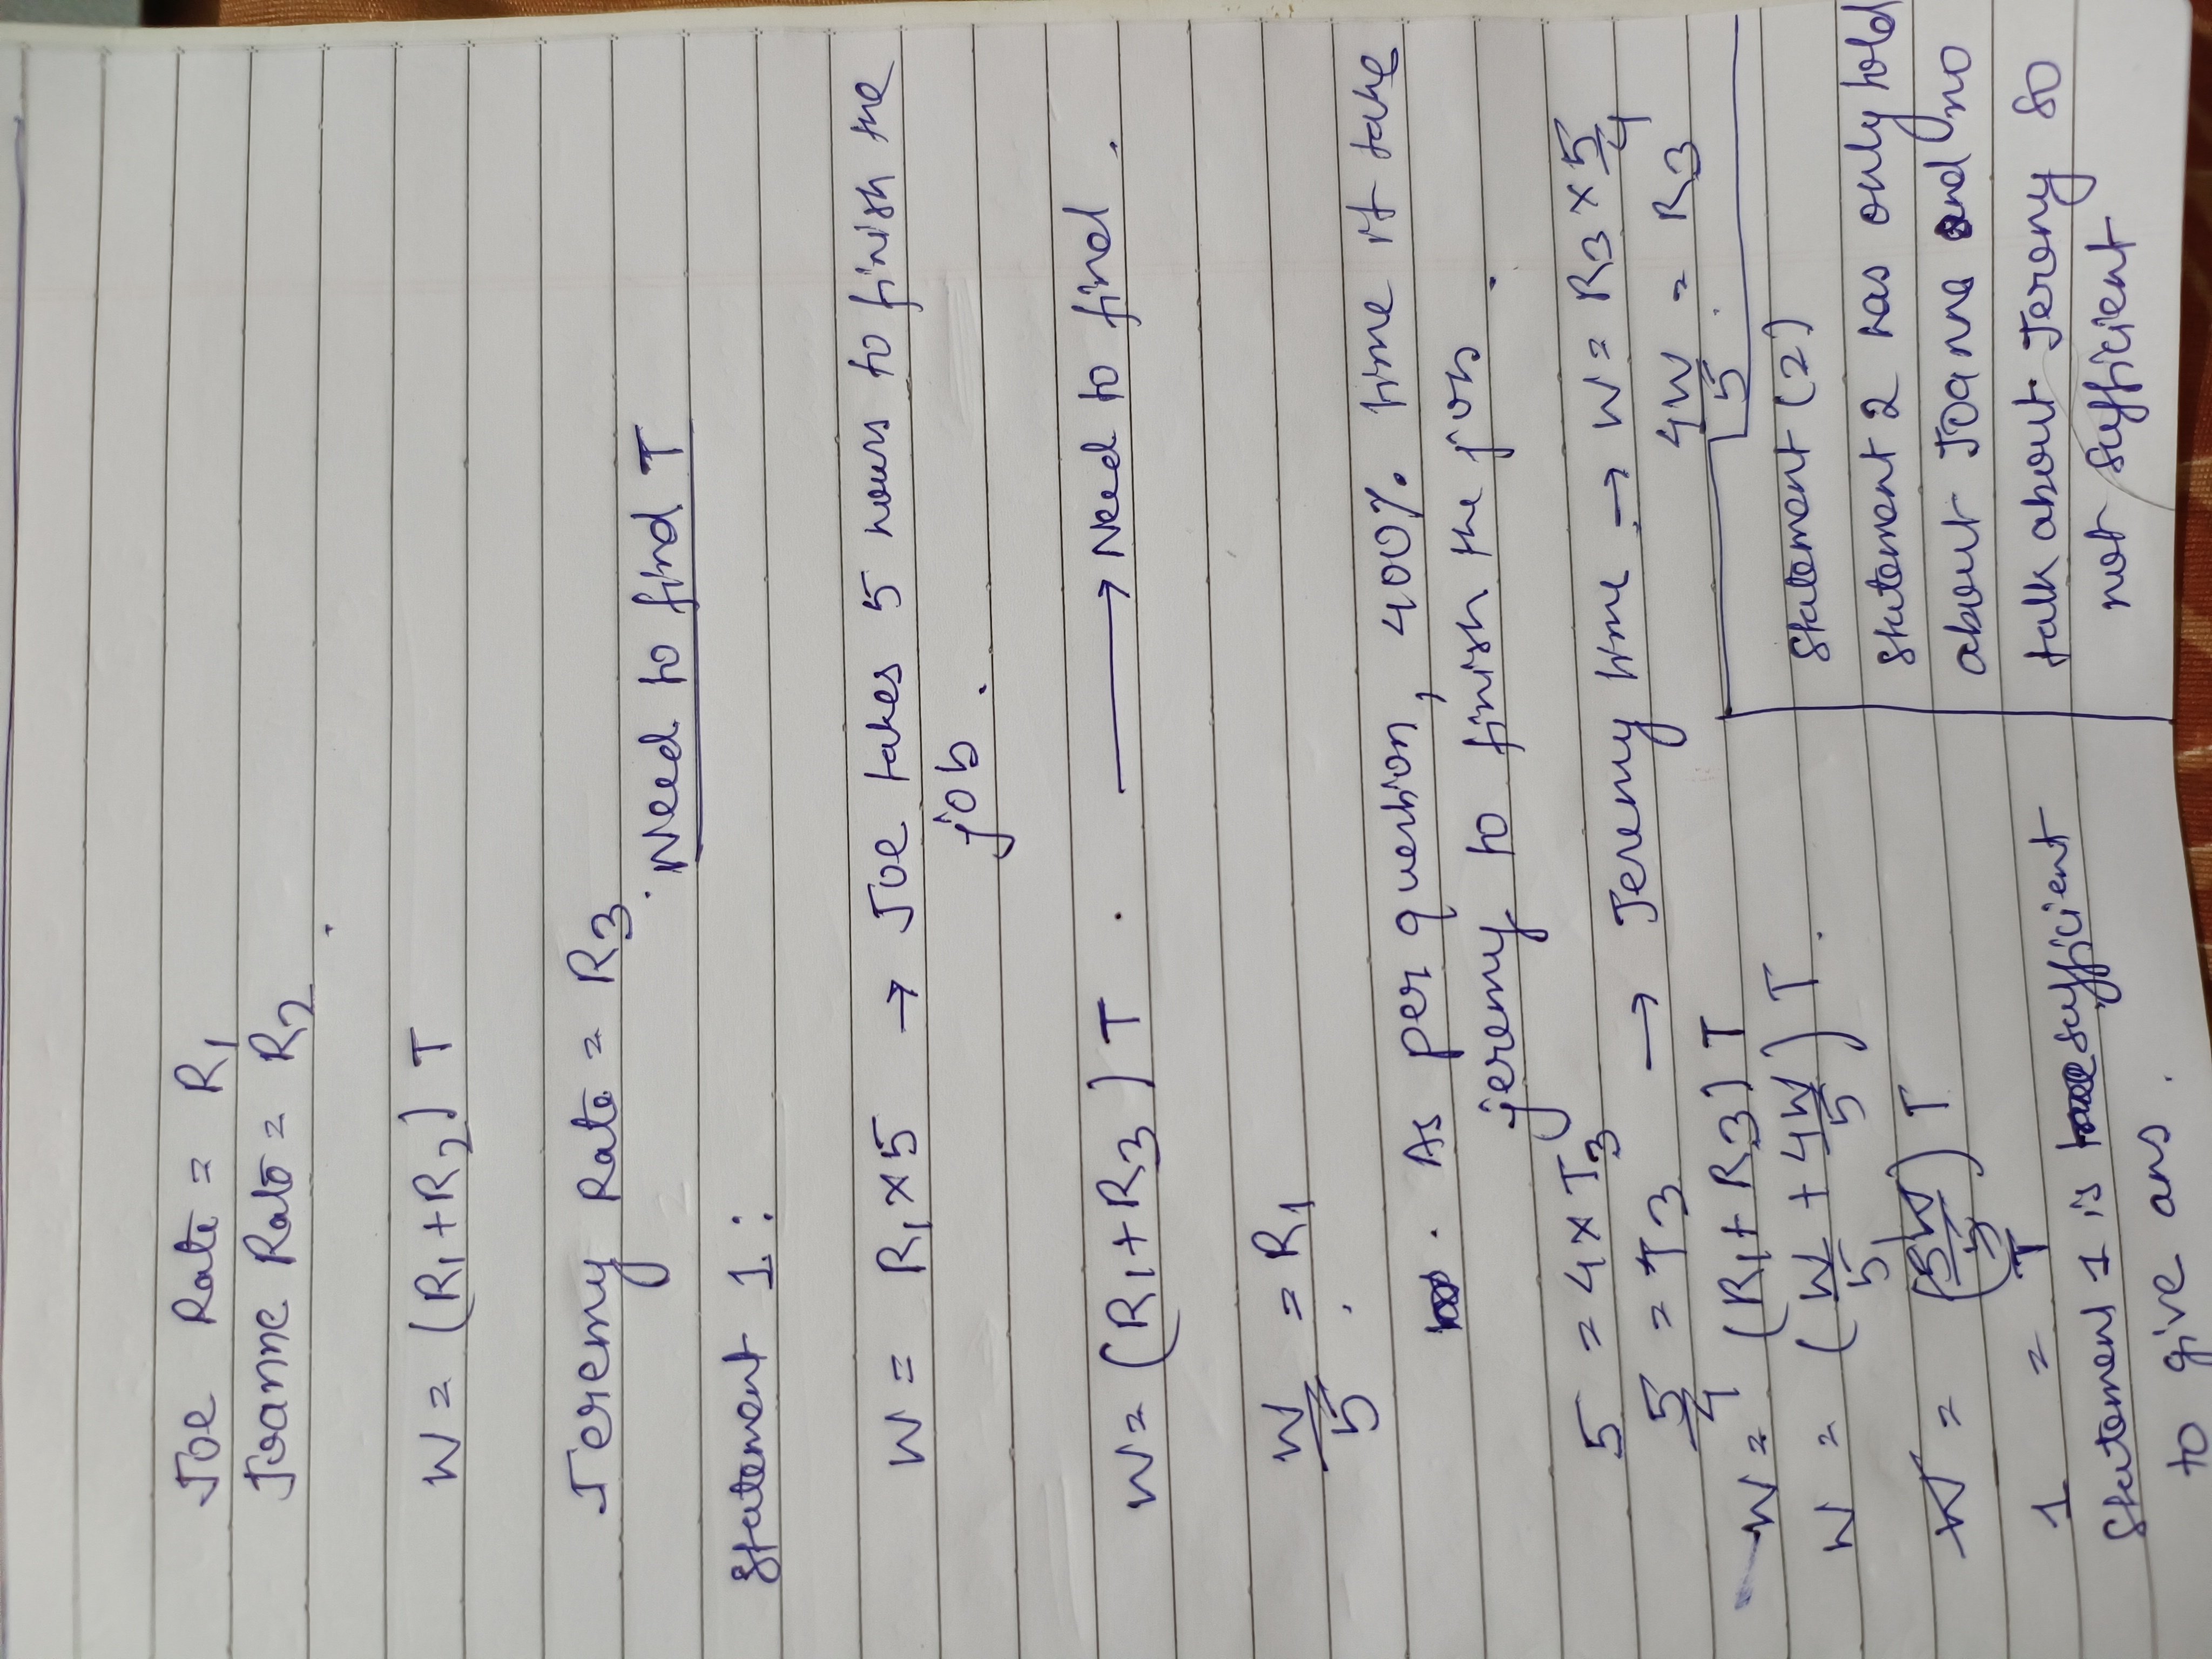 Joe Rate = R1
Joanne Rate = R2
W = (R1+R2) T
Jeremy Rate = R3
Need to find T
Statement 1:
W = R1×5 → Joe takes 5 hours to finish the
job.
W = (R1+R3) T. → Need to find.
W/5 = R1
. As per question, 400% time it take
jeremy to finish the job.
5 = 4×T3
5/4 = T3 → Jeremy time → W = R3×5/4
4W/5 = R3
W = (R1+R3) T
W = (W/5 + 4W/5) T.
W = (5W/5) T
1 = T
Statement 1 is sufficient
to give ans.
Statement (2)
Statement 2 has only told
about Joanne and no
talk about Jerony so
not sufficient